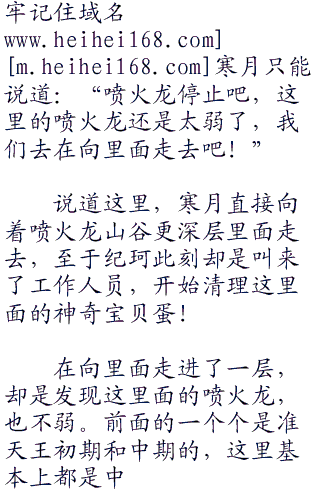 牢记住域名
www.heihei168.com]
[m.heihei168.com]寒月只能
说道：“喷火龙停止吧，这
里的喷火龙还是太弱了，我
们去在向里面走去吧！”
说道这里，寒月直接向
着喷火龙山谷更深层里面走
去，至于纪珂此刻却是叫来
了工作人员，开始清理这里
面的神奇宝贝蛋！
在向里面走进了一层，
却是发现这里面的喷火龙，
也不弱。前面的一个个是准
天王初期和中期的，这里基
本上都是中